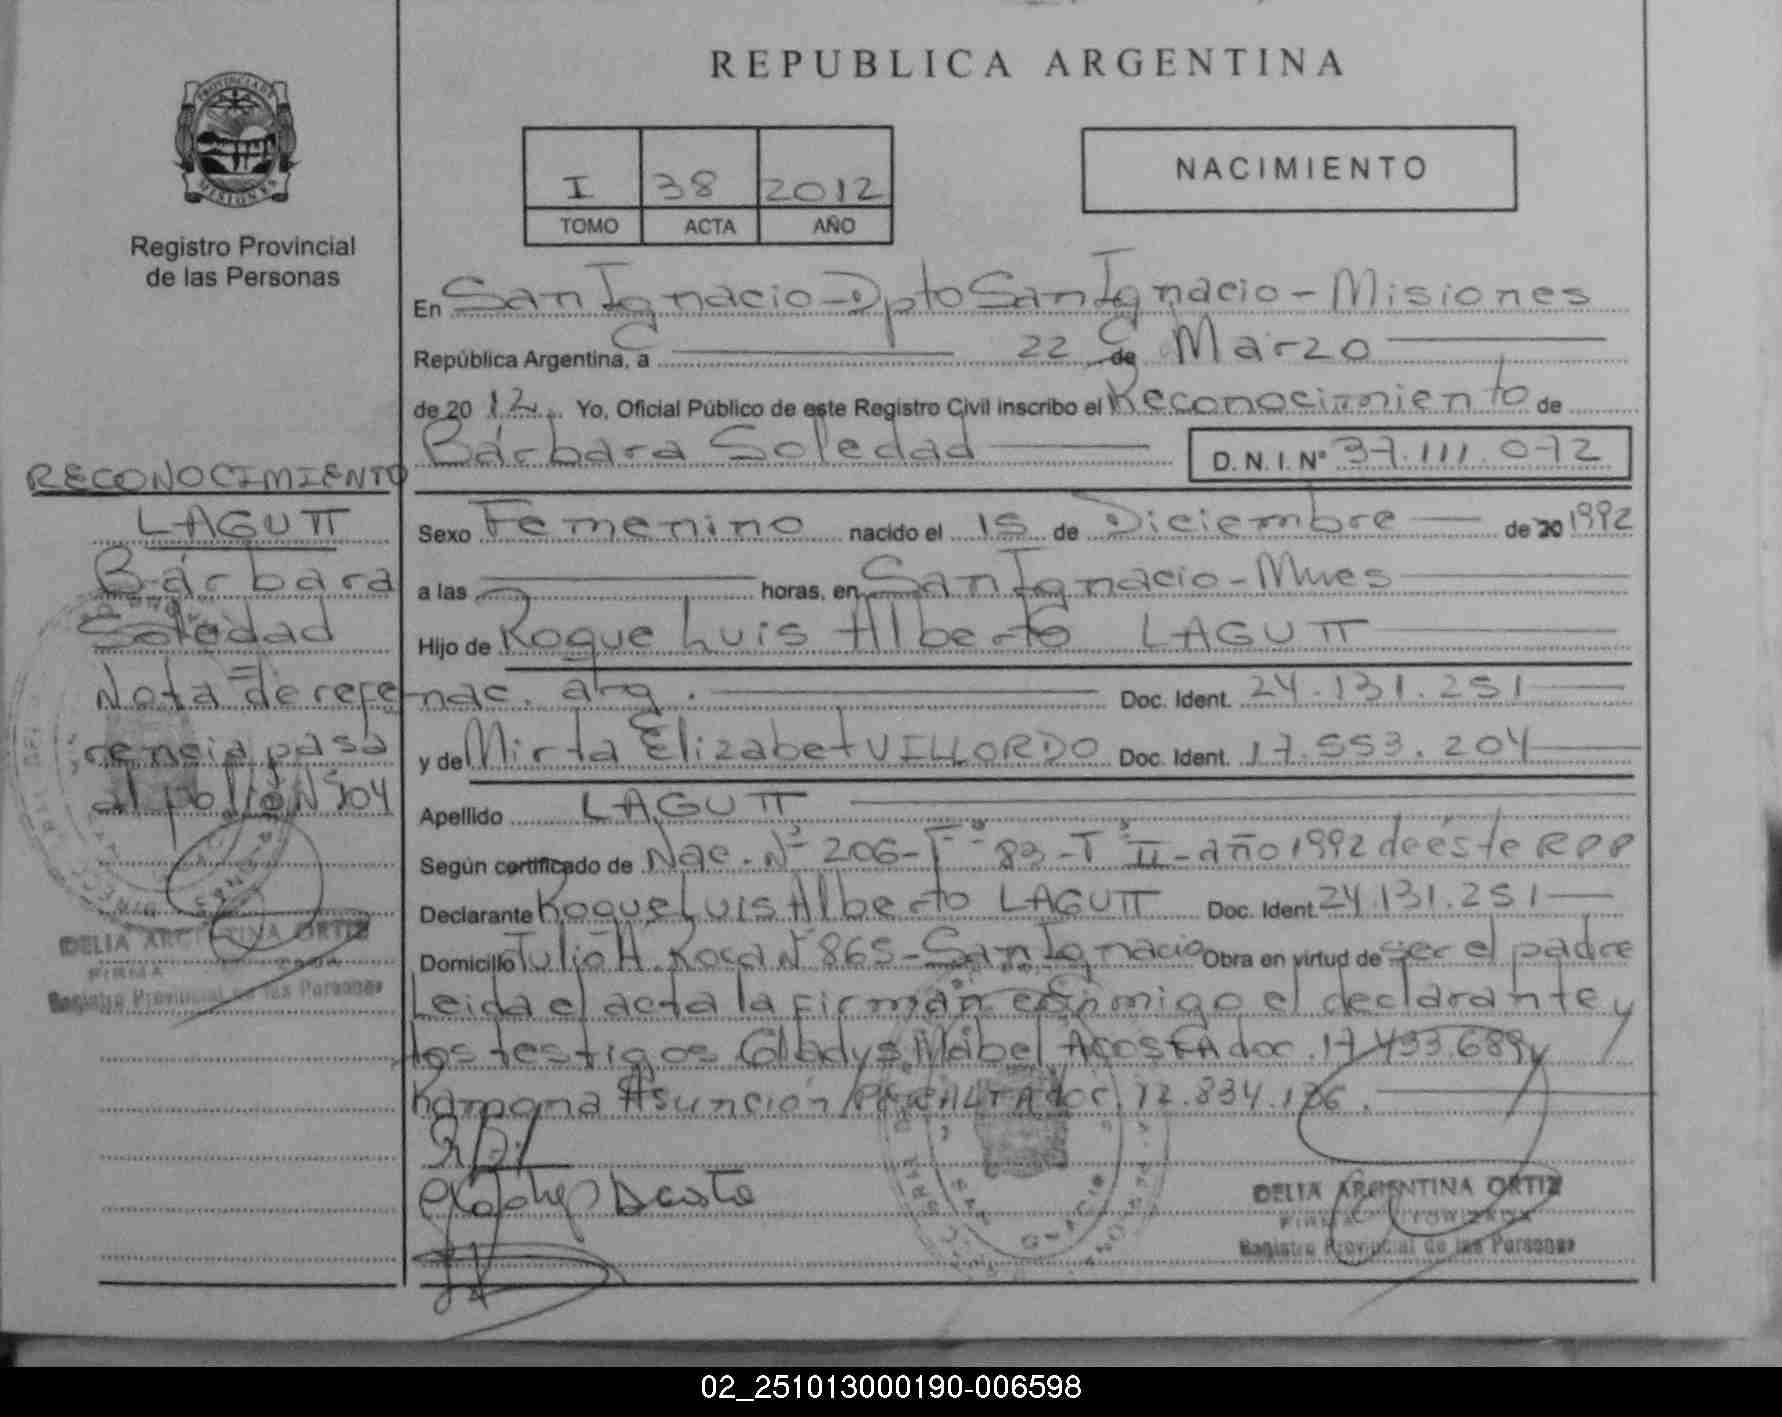 REPUBLICA ARGENTINA
PROVINCIA DE MISIONES
Registro Provincial
de las Personas
I 38 2012
TOMO ACTA AÑO
NACIMIENTO
En San Ignacio - Dpto San Ignacio - Misiones
República Argentina, a 22 de Marzo
de 2012. Yo, Oficial Público de este Registro Civil inscribo el Reconocimiento de
Bárbara Soledad D.N.I. Nº 37.111.072
Sexo Femenino nacido el 15 de Diciembre de 20 1992
a las horas, en San Ignacio - Mnes
Hijo de Roque Luis Alberto LAGUTT
nac. arg. Doc. Ident. 24.131.251
y de Mirta Elizabet VILLORDO Doc. Ident. 17.553.204
Apellido LAGUTT
Según certificado de Nac. Nº 206 - Fº 83 - Tº II - año 1992 de éste RPP
Declarante Roque Luis Alberto LAGUTT Doc. Ident. 24.131.251
Domicilio Julio A. Roca Nº 865 - San Ignacio Obra en virtud de ser el padre
Leida el acta la firman conmigo el declarante y
los testigos Gladys Mabel ACOSTA doc. 17.493.689 y
Ramona Asunción doc. 12.834.126.
Gladys Acosta
DELIA ARGENTINA ORTIZ
FIRMA AUTORIZADA
Registro Provincial de las Personas
RECONOCIMIENTO
LAGUTT
Bárbara
Soledad
Nota de refe
rencia pasa
al folio Nº 304
DELIA ARGENTINA ORTIZ
FIRMA AUTORIZADA
Registro Provincial de las Personas
02_251013000190-006598